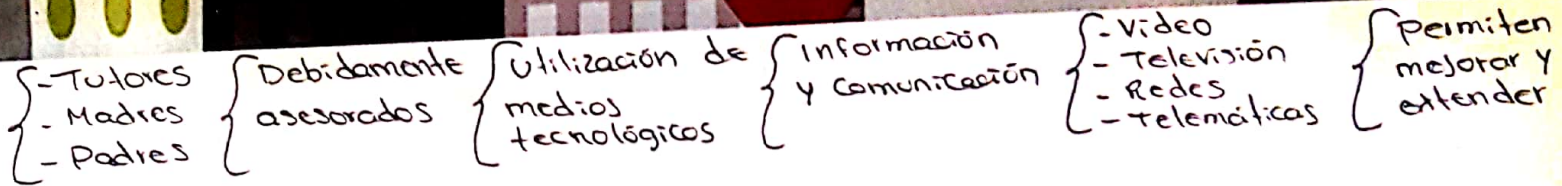 - Tutores
- Madres
- Padres
Debidamente
asesorados
Utilización de
medios
tecnológicos
información
y comunicación
- Video
- Televisión
- Redes
- Telemáticas
Permiten
mejorar y
extender